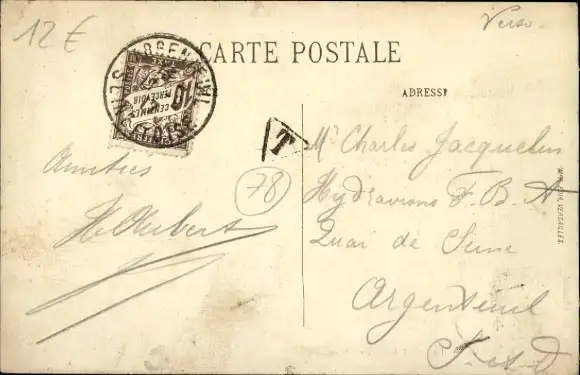 12 €
Verso
CARTE POSTALE
ADRESSE
ARGENTEUIL
10
CENTIMES
À
PERCEVOIR
T
Amitiés
H Aubert
78
Mr Charles Jacquelin
Hydravions F. B. A
Quai de Seine
Argenteuil
S. et O
VERSAILLES